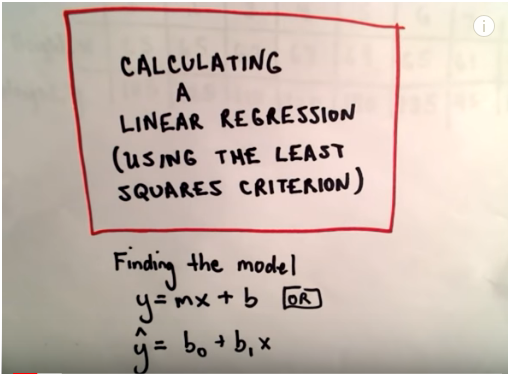 CALCULATING
A
LINEAR REGRESSION
(USING THE LEAST
SQUARES CRITERION)
Finding the model
y = mx + b OR
ŷ = b₀ + b₁ x